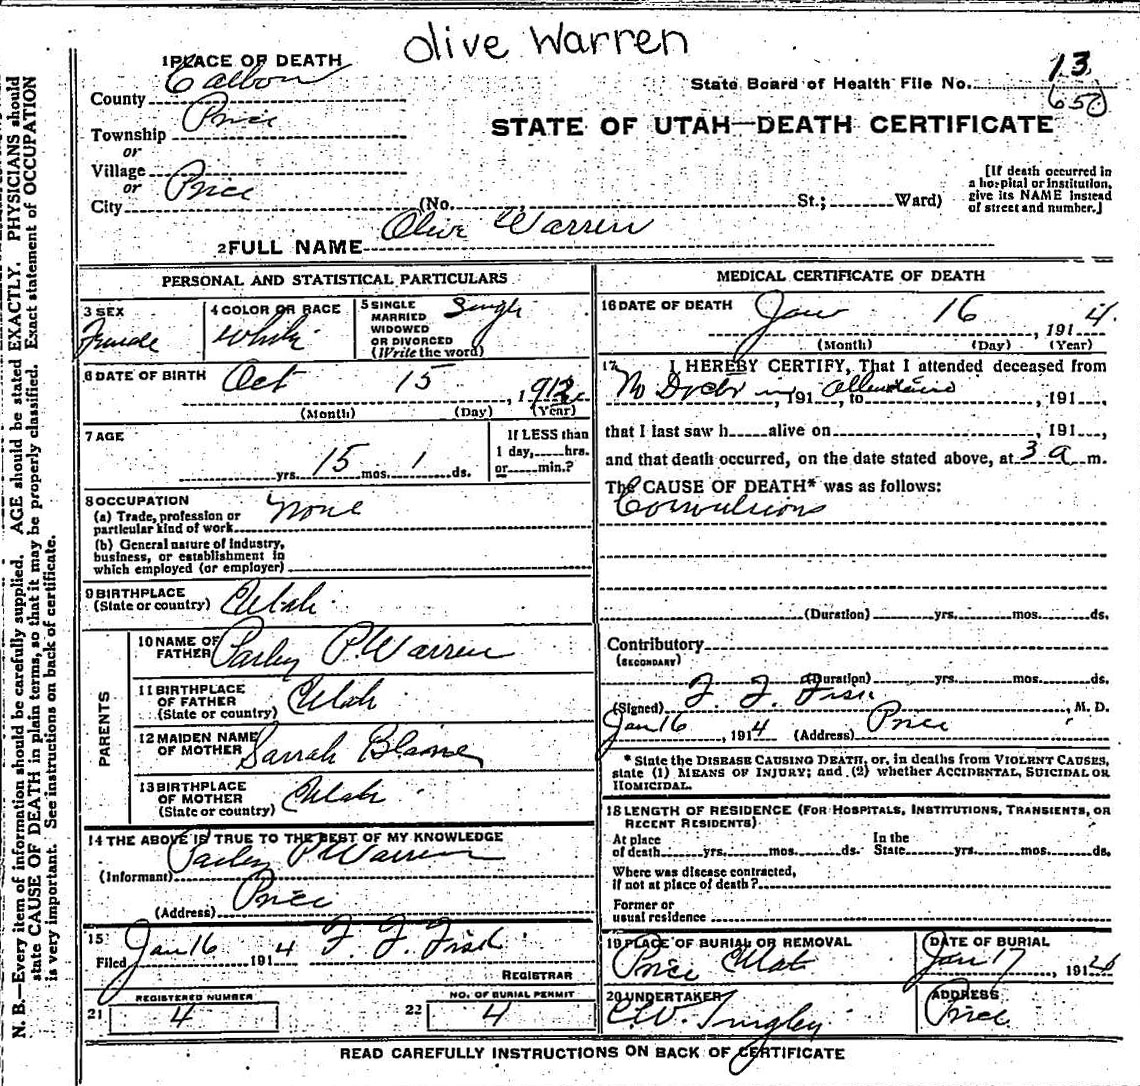 Olive Warren
1 PLACE OF DEATH
State Board of Health File No. 13
650
County Carbon
STATE OF UTAH—DEATH CERTIFICATE
Township Price
or
Village
or
City Price (No. St.; Ward)
[If death occurred in a hospital or institution, give its NAME instead of street and number.]
2 FULL NAME Olive Warren
N. B.—Every item of information should be carefully supplied. AGE should be stated EXACTLY. PHYSICIANS should
state CAUSE OF DEATH in plain terms, so that it may be properly classified. Exact statement of OCCUPATION
is very important. See instructions on back of certificate.
PERSONAL AND STATISTICAL PARTICULARS
3 SEX
Female
4 COLOR OR RACE
White
5 SINGLE
MARRIED
WIDOWED
OR DIVORCED
(Write the word)
Single
6 DATE OF BIRTH Oct 15, 1912
(Month) (Day) (Year)
7 AGE
yrs. 15 mos. 1 ds.
If LESS than
1 day, hrs.
or min.?
8 OCCUPATION
(a) Trade, profession or
particular kind of work None
(b) General nature of industry,
business, or establishment in
which employed (or employer)
9 BIRTHPLACE
(State or country) Utah
PARENTS
10 NAME OF
FATHER Parley P. Warren
11 BIRTHPLACE
OF FATHER
(State or country) Utah
12 MAIDEN NAME
OF MOTHER Sarrah Blaine
13 BIRTHPLACE
OF MOTHER
(State or country) Utah
14 THE ABOVE IS TRUE TO THE BEST OF MY KNOWLEDGE
(Informant) Parley P Warren
(Address) Price
15
Filed Jan 16 1914 F. F. Fisk
REGISTRAR
REGISTERED NUMBER
21 4
NO. OF BURIAL PERMIT
22 4
MEDICAL CERTIFICATE OF DEATH
16 DATE OF DEATH Jan 16, 1914.
(Month) (Day) (Year)
17 I HEREBY CERTIFY, That I attended deceased from
No Doctor in, 191 attendance, to, 191,
that I last saw h alive on, 191,
and that death occurred, on the date stated above, at 3 a m.
The CAUSE OF DEATH* was as follows:
Convulsions
(Duration) yrs. mos. ds.
Contributory
(SECONDARY)
(Duration) yrs. mos. ds.
(Signed) F. F. Fisk, M. D.
Jan 16, 1914 (Address) Price
* State the DISEASE CAUSING DEATH, or, in deaths from VIOLENT CAUSES,
state (1) MEANS OF INJURY; and (2) whether ACCIDENTAL, SUICIDAL OR
HOMICIDAL.
18 LENGTH OF RESIDENCE (FOR HOSPITALS, INSTITUTIONS, TRANSIENTS, OR
RECENT RESIDENTS)
At place
of death yrs. mos. ds. In the
State yrs. mos. ds.
Where was disease contracted,
if not at place of death?
Former or
usual residence
19 PLACE OF BURIAL OR REMOVAL
Price Utah
DATE OF BURIAL
Jan 17, 1914
20 UNDERTAKER
ADDRESS
Price
READ CAREFULLY INSTRUCTIONS ON BACK OF CERTIFICATE